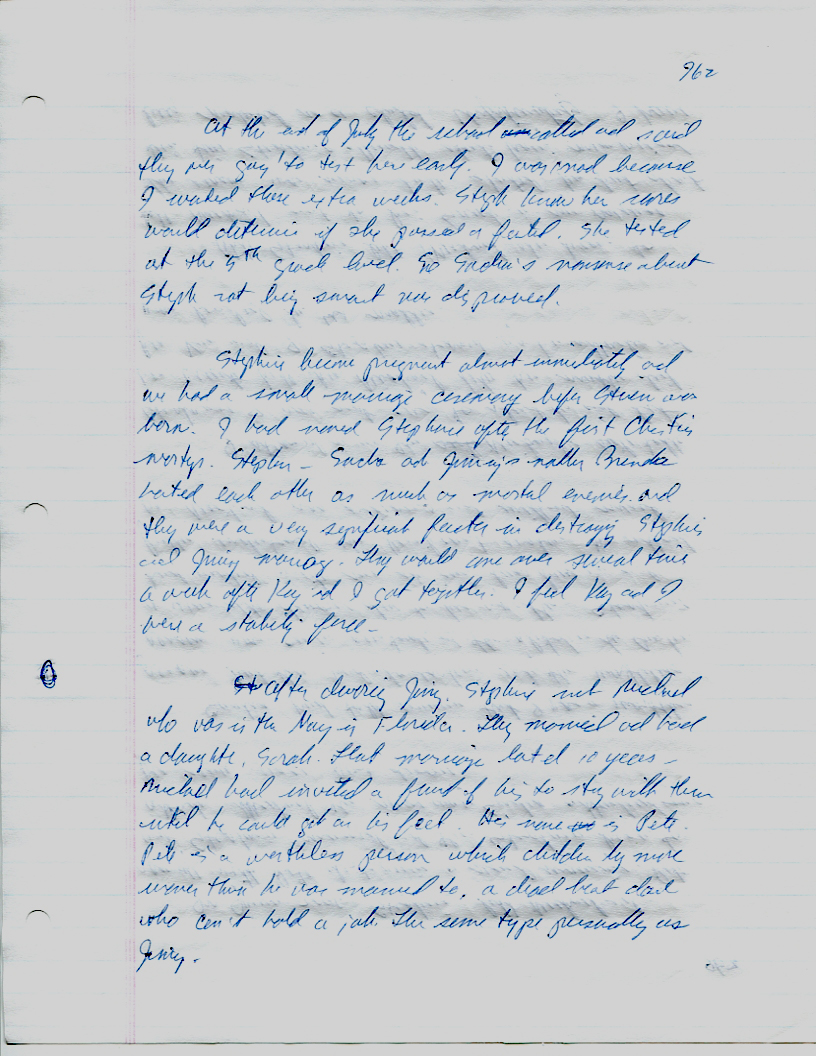 962
At the end of July the school called and said
they were going to test her early. I was mad because
I wanted those extra weeks. Steph knew her scores
would determine if she passed or failed. She tested
at the 5th grade level. So Sacha's nonsense about
Steph not being smart was disproved.
Stephanie become pregnant almost immediately and
we had a small marriage ceremony before was
born. I had named Stephanie after the first Christian
martyr. Stephen - and Jimmy's mother Brenda
hated each other as much as mortal enemies and
they were a very significant factor in destroying Stephanie
and Jimmy marriage. They would come over several times
a week after Kay and I got together. I feel Kay and I
were a stability force -
St After divorcing Jimmy, Stephanie met Michael
who was in the Navy in Florida. They married and had
a daughter, Sarah. That marriage lasted 10 years -
Michael had invited a friend of his to stay with them
until he could get on his feet. His name is Pete.
Pete is a worthless person which children by more
women than he was married to, a dead beat dad
who can't hold a job. The same type personality as
Jimmy.